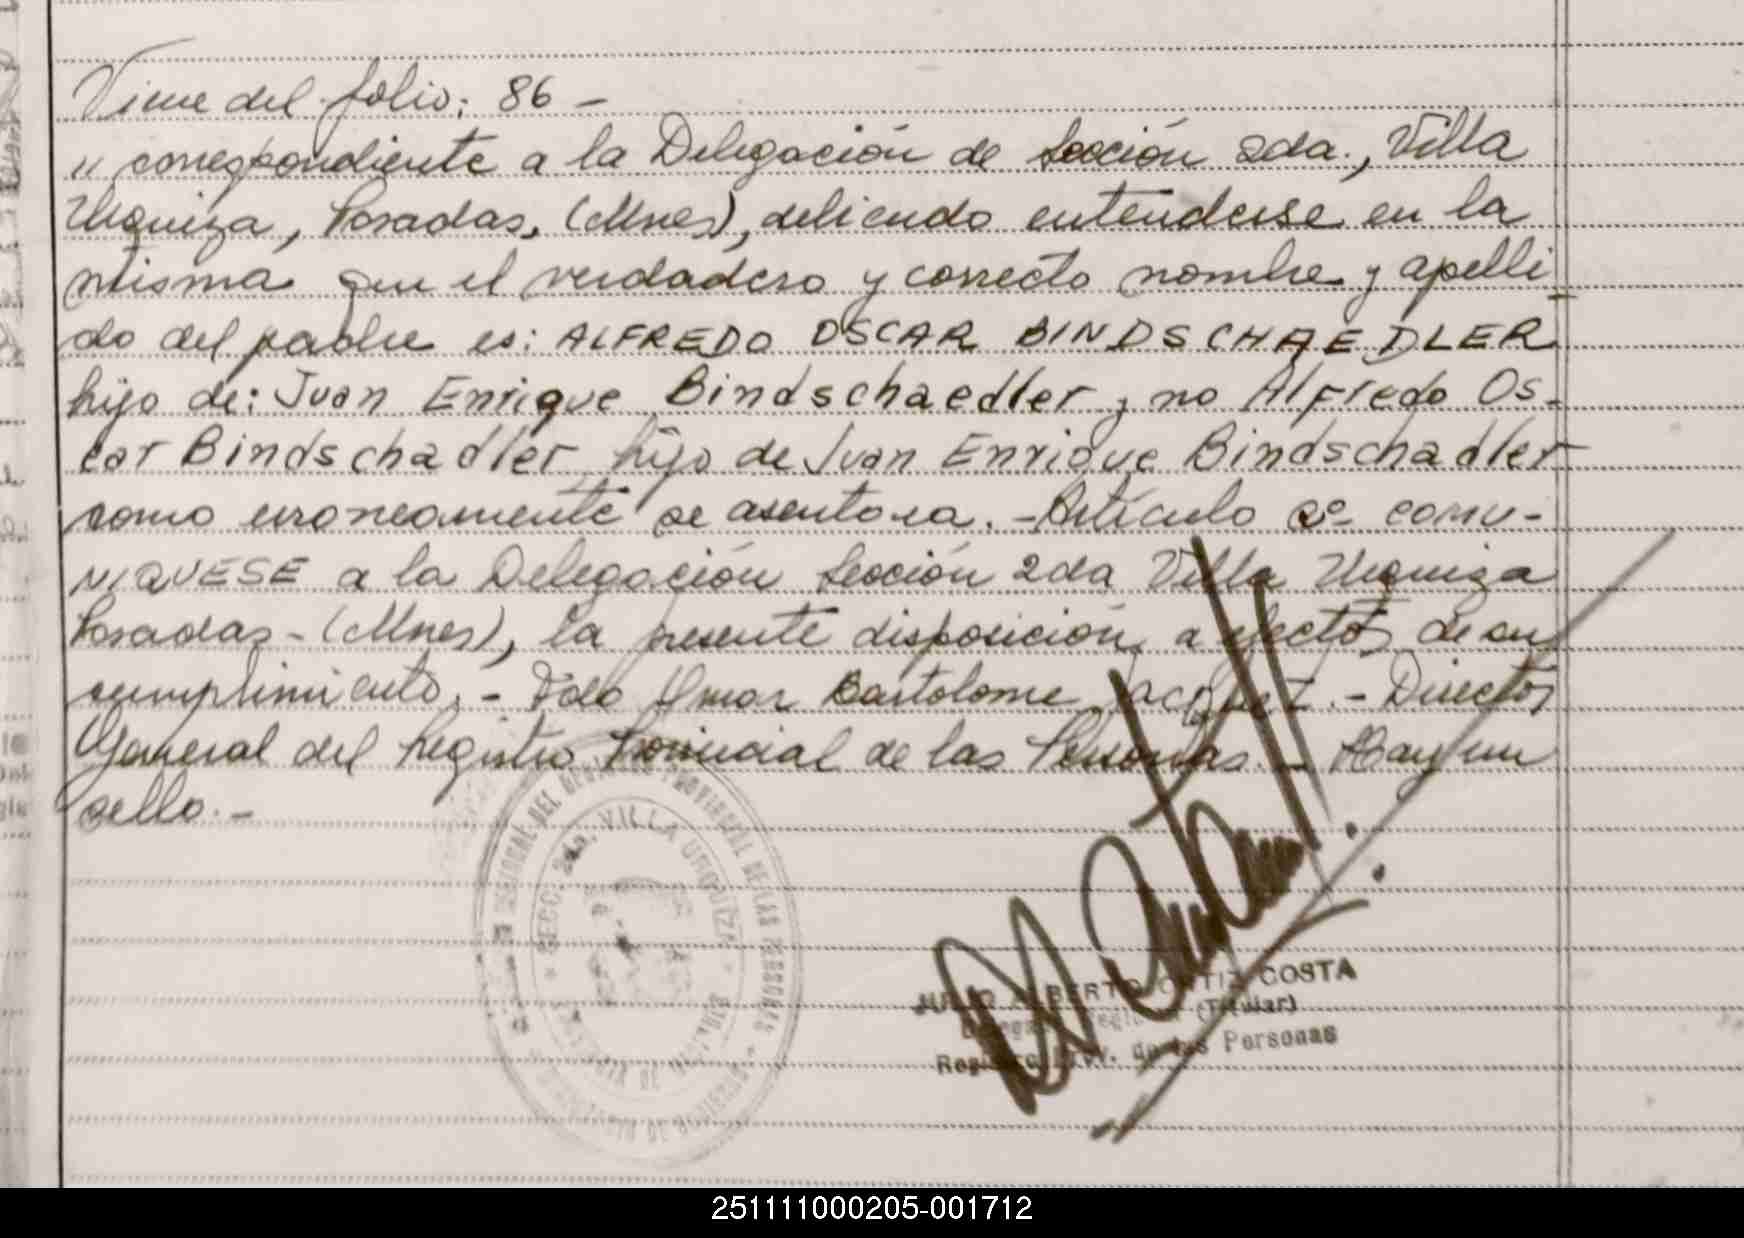 Viene del folio: 86 -
" correspondiente a la Delegación de Sección 2da., Villa
Urquiza, Posadas, (Mnes), debiendo entenderse en la
misma que el verdadero y correcto nombre y apelli
do del padre es: ALFREDO OSCAR BINDSCHAEDLER
hijo de: Juan Enrique Bindschaedler y no Alfredo Os-
car Bindschadler hijo de Juan Enrique Bindschadler
como erroneamente se asentara. - Artículo 2º comu-
NIQUESE a la Delegación Sección 2da Villa Urquiza
Posadas - (Mnes), la presente disposición a efectos de su
cumplimiento. - Fdo Omar Bartolome Jacquet. - Director
General del Registro Provincial de las Personas. - Hay un
sello. -
PROVINCIAL DE LAS PERSONAS
SECC. 2da. VILLA URQUIZA
JULIO ALBERTO ORTIZ COSTA
(Titular)
Registro Prov. de las Personas
251111000205-001712